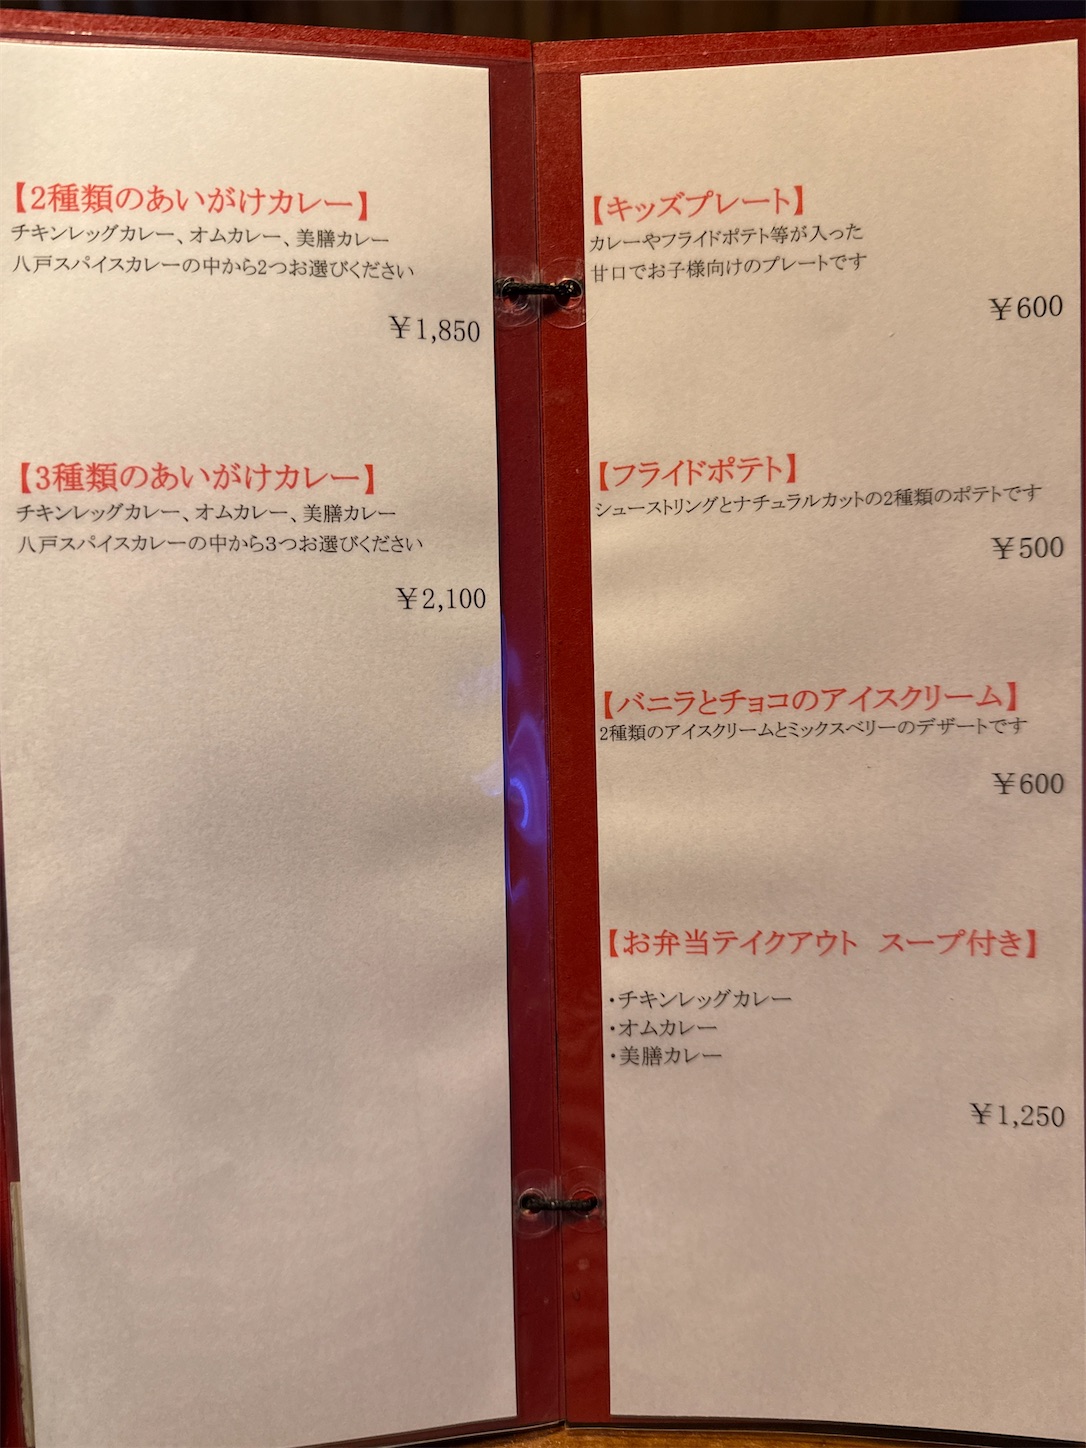 【2種類のあいがけカレー】
チキンレッグカレー、オムカレー、美膳カレー
八戸スパイスカレーの中から2つお選びください
￥1,850
【3種類のあいがけカレー】
チキンレッグカレー、オムカレー、美膳カレー
八戸スパイスカレーの中から3つお選びください
￥2,100
【キッズプレート】
カレーやフライドポテト等が入った
甘口でお子様向けのプレートです
￥600
【フライドポテト】
シューストリングとナチュラルカットの2種類のポテトです
￥500
【バニラとチョコのアイスクリーム】
2種類のアイスクリームとミックスベリーのデザートです
￥600
【お弁当テイクアウト　スープ付き】
・チキンレッグカレー
・オムカレー
・美膳カレー
￥1,250